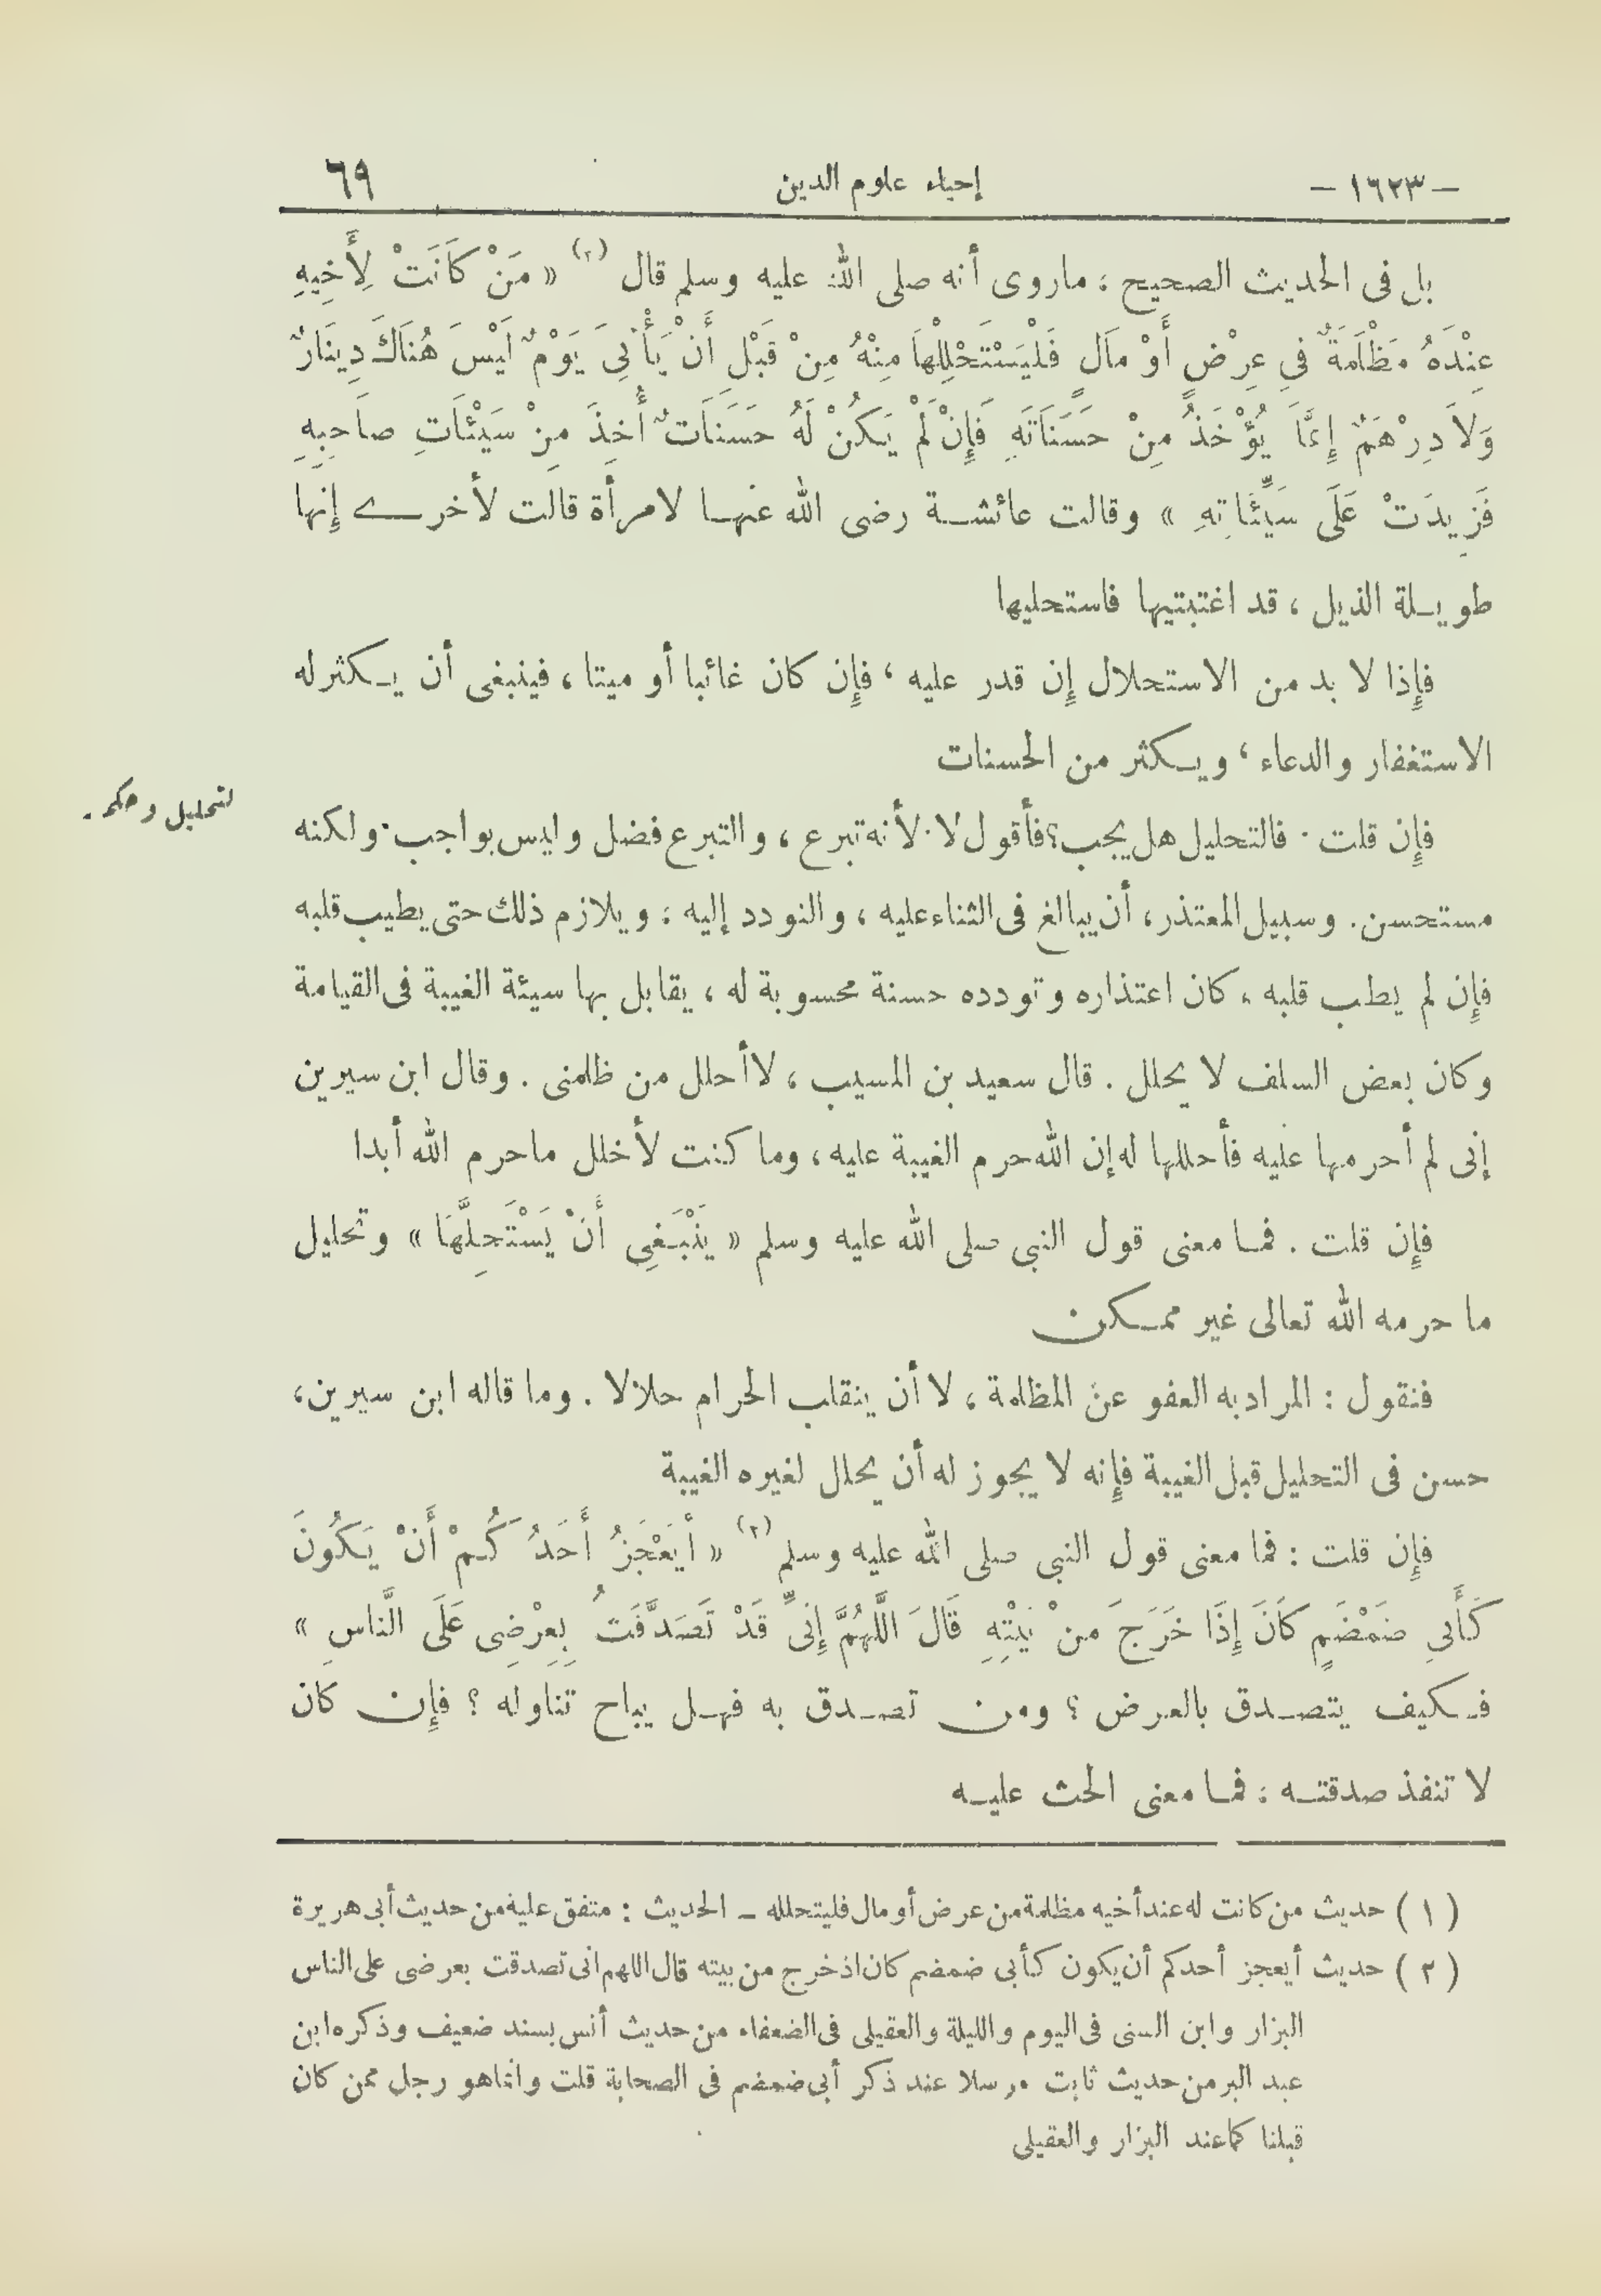 - ١٦٢٣ - إحياء علوم الدين ٦٩
بل فى الحديث الصحيح ، ماروى أنه صلى الله عليه وسلم قال (٢) « مَنْ كَانَتْ لِأَخِيهِ
عِنْدَهُ مَظْلَمَةٌ فِي عِرْضٍ أَوْ مَالٍ فَلْيَسْتَحْلِلْهَا مِنْهُ مِنْ قَبْلِ أَنْ يَأْتِيَ يَوْمٌ لَيْسَ هُنَاكَ دِينَارٌ
وَلَا دِرْهَمٌ إِنَّمَا يُؤْخَذُ مِنْ حَسَنَاتِهِ فَإِنْ لَمْ يَكُنْ لَهُ حَسَنَاتٌ أُخِذَ مِنْ سَيِّئَاتِ صَاحِبِهِ
فَزِيدَتْ عَلَى سَيِّئَاتِهِ » وقالت عائشة رضى الله عنها لامرأة قالت لأخرى إنها
طويلة الذيل ، قد اغتبتيها فاستحليها
فإذا لا بد من الاستحلال إن قدر عليه ، فإن كان غائبا أو ميتا ، فينبغى أن يكثر له
الاستغفار والدعاء ، ويكثر من الحسنات
لتحليل وحكمه
فإن قلت . فالتحليل هل يجب ؟ فأقول لا . لأنه تبرع ، والتبرع فضل وليس بواجب . ولكنه
مستحسن . وسبيل المعتذر ، أن يبالغ فى الثناء عليه ، والتودد إليه ، ويلازم ذلك حتى يطيب قلبه
فإن لم يطب قلبه ، كان اعتذاره وتودده حسنة محسوبة له ، يقابل بها سيئة الغيبة فى القيامة
وكان بعض السلف لا يحلل . قال سعيد بن المسيب ، لا أحلل من ظلمنى . وقال ابن سيرين
إنى لم أحرمها عليه فأحللها له إن الله حرم الغيبة عليه ، وما كنت لأحلل ما حرم الله أبدا
فإن قلت . فما معنى قول النبى صلى الله عليه وسلم « يَنْبَغِى أَنْ يَسْتَحِلَّهَا » وتحليل
ما حرمه الله تعالى غير ممكن
فنقول : المراد به العفو عن المظلمة ، لا أن ينقلب الحرام حلالا . وما قاله ابن سيرين ،
حسن فى التحليل قبل الغيبة فإنه لا يجوز له أن يحلل لغيره الغيبة
فإن قلت : فما معنى قول النبى صلى الله عليه وسلم (٢) « أَيَعْجَزُ أَحَدُكُمْ أَنْ يَكُونَ
كَأَبِي ضَمْضَمٍ كَانَ إِذَا خَرَجَ مِنْ بَيْتِهِ قَالَ اللَّهُمَّ إِنِّى قَدْ تَصَدَّقْتُ بِعِرْضِى عَلَى النَّاسِ »
فكيف يتصدق بالعرض ؟ ومن تصدق به فهل يباح تناوله ؟ فإن كان
لا تنفذ صدقته ، فما معنى الحث عليه
( ١ ) حديث من كانت له عند أخيه مظلمة من عرض أو مال فليتحلله ــ الحديث : متفق عليه من حديث أبى هريرة
( ٢ ) حديث أيعجز أحدكم أن يكون كأبى ضمضم كان اذا خرج من بيته قال اللهم انى تصدقت بعرضى على الناس
البزار وابن السنى فى اليوم والليلة والعقيلى فى الضعفاء من حديث أنس بسند ضعيف وذكره ابن
عبد البر من حديث ثابت مرسلا عند ذكر أبى ضمضم فى الصحابة قلت وانما هو رجل ممن كان
قبلنا كما عند البزار والعقيلى